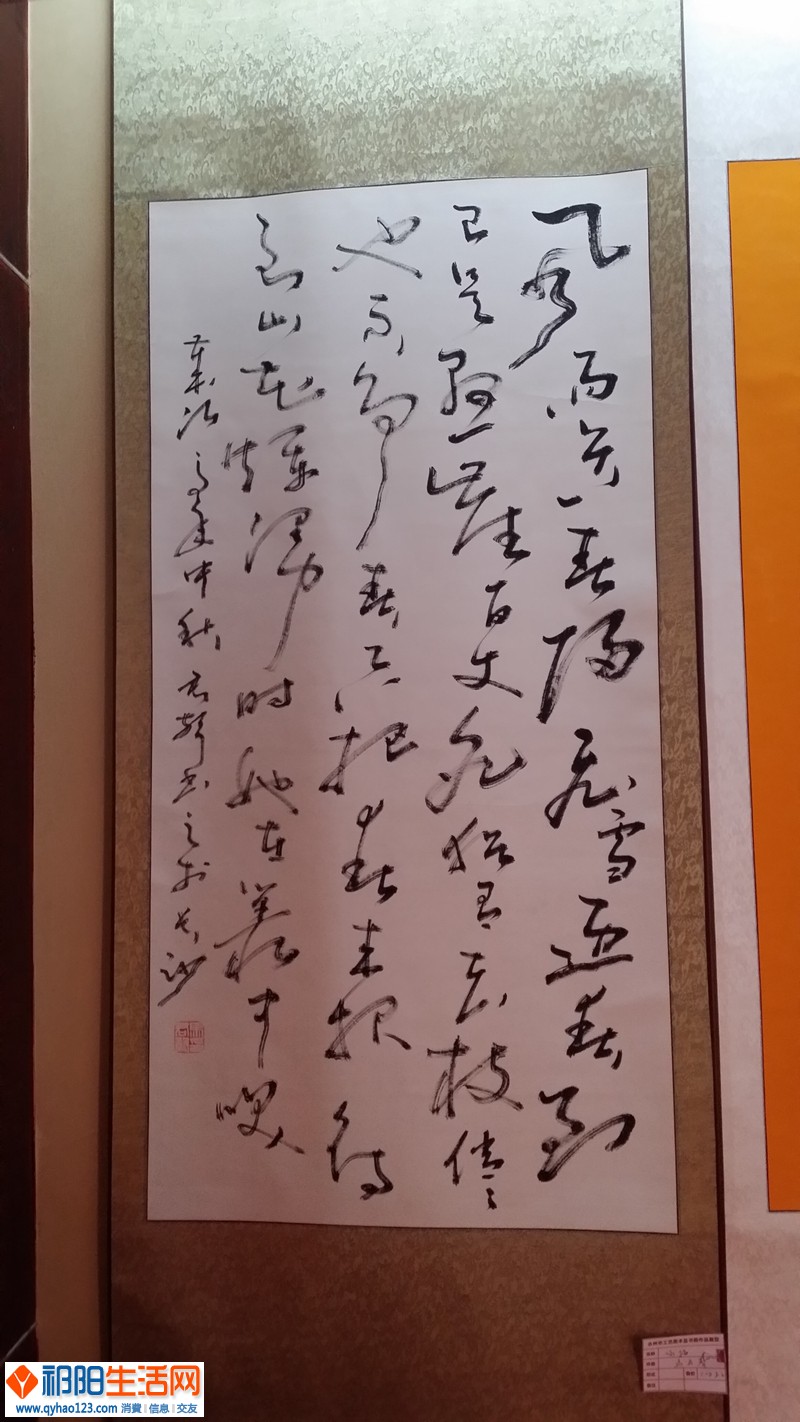 风雨送春归飞雪迎春到
已是悬崖百丈冰犹有花枝俏〻
也不争春只把春来报待
到山花烂漫时她在叢中笑
年中秋 书之于长沙
祁阳生活网
www.qyhao123.com 消費 | 信息 | 交友